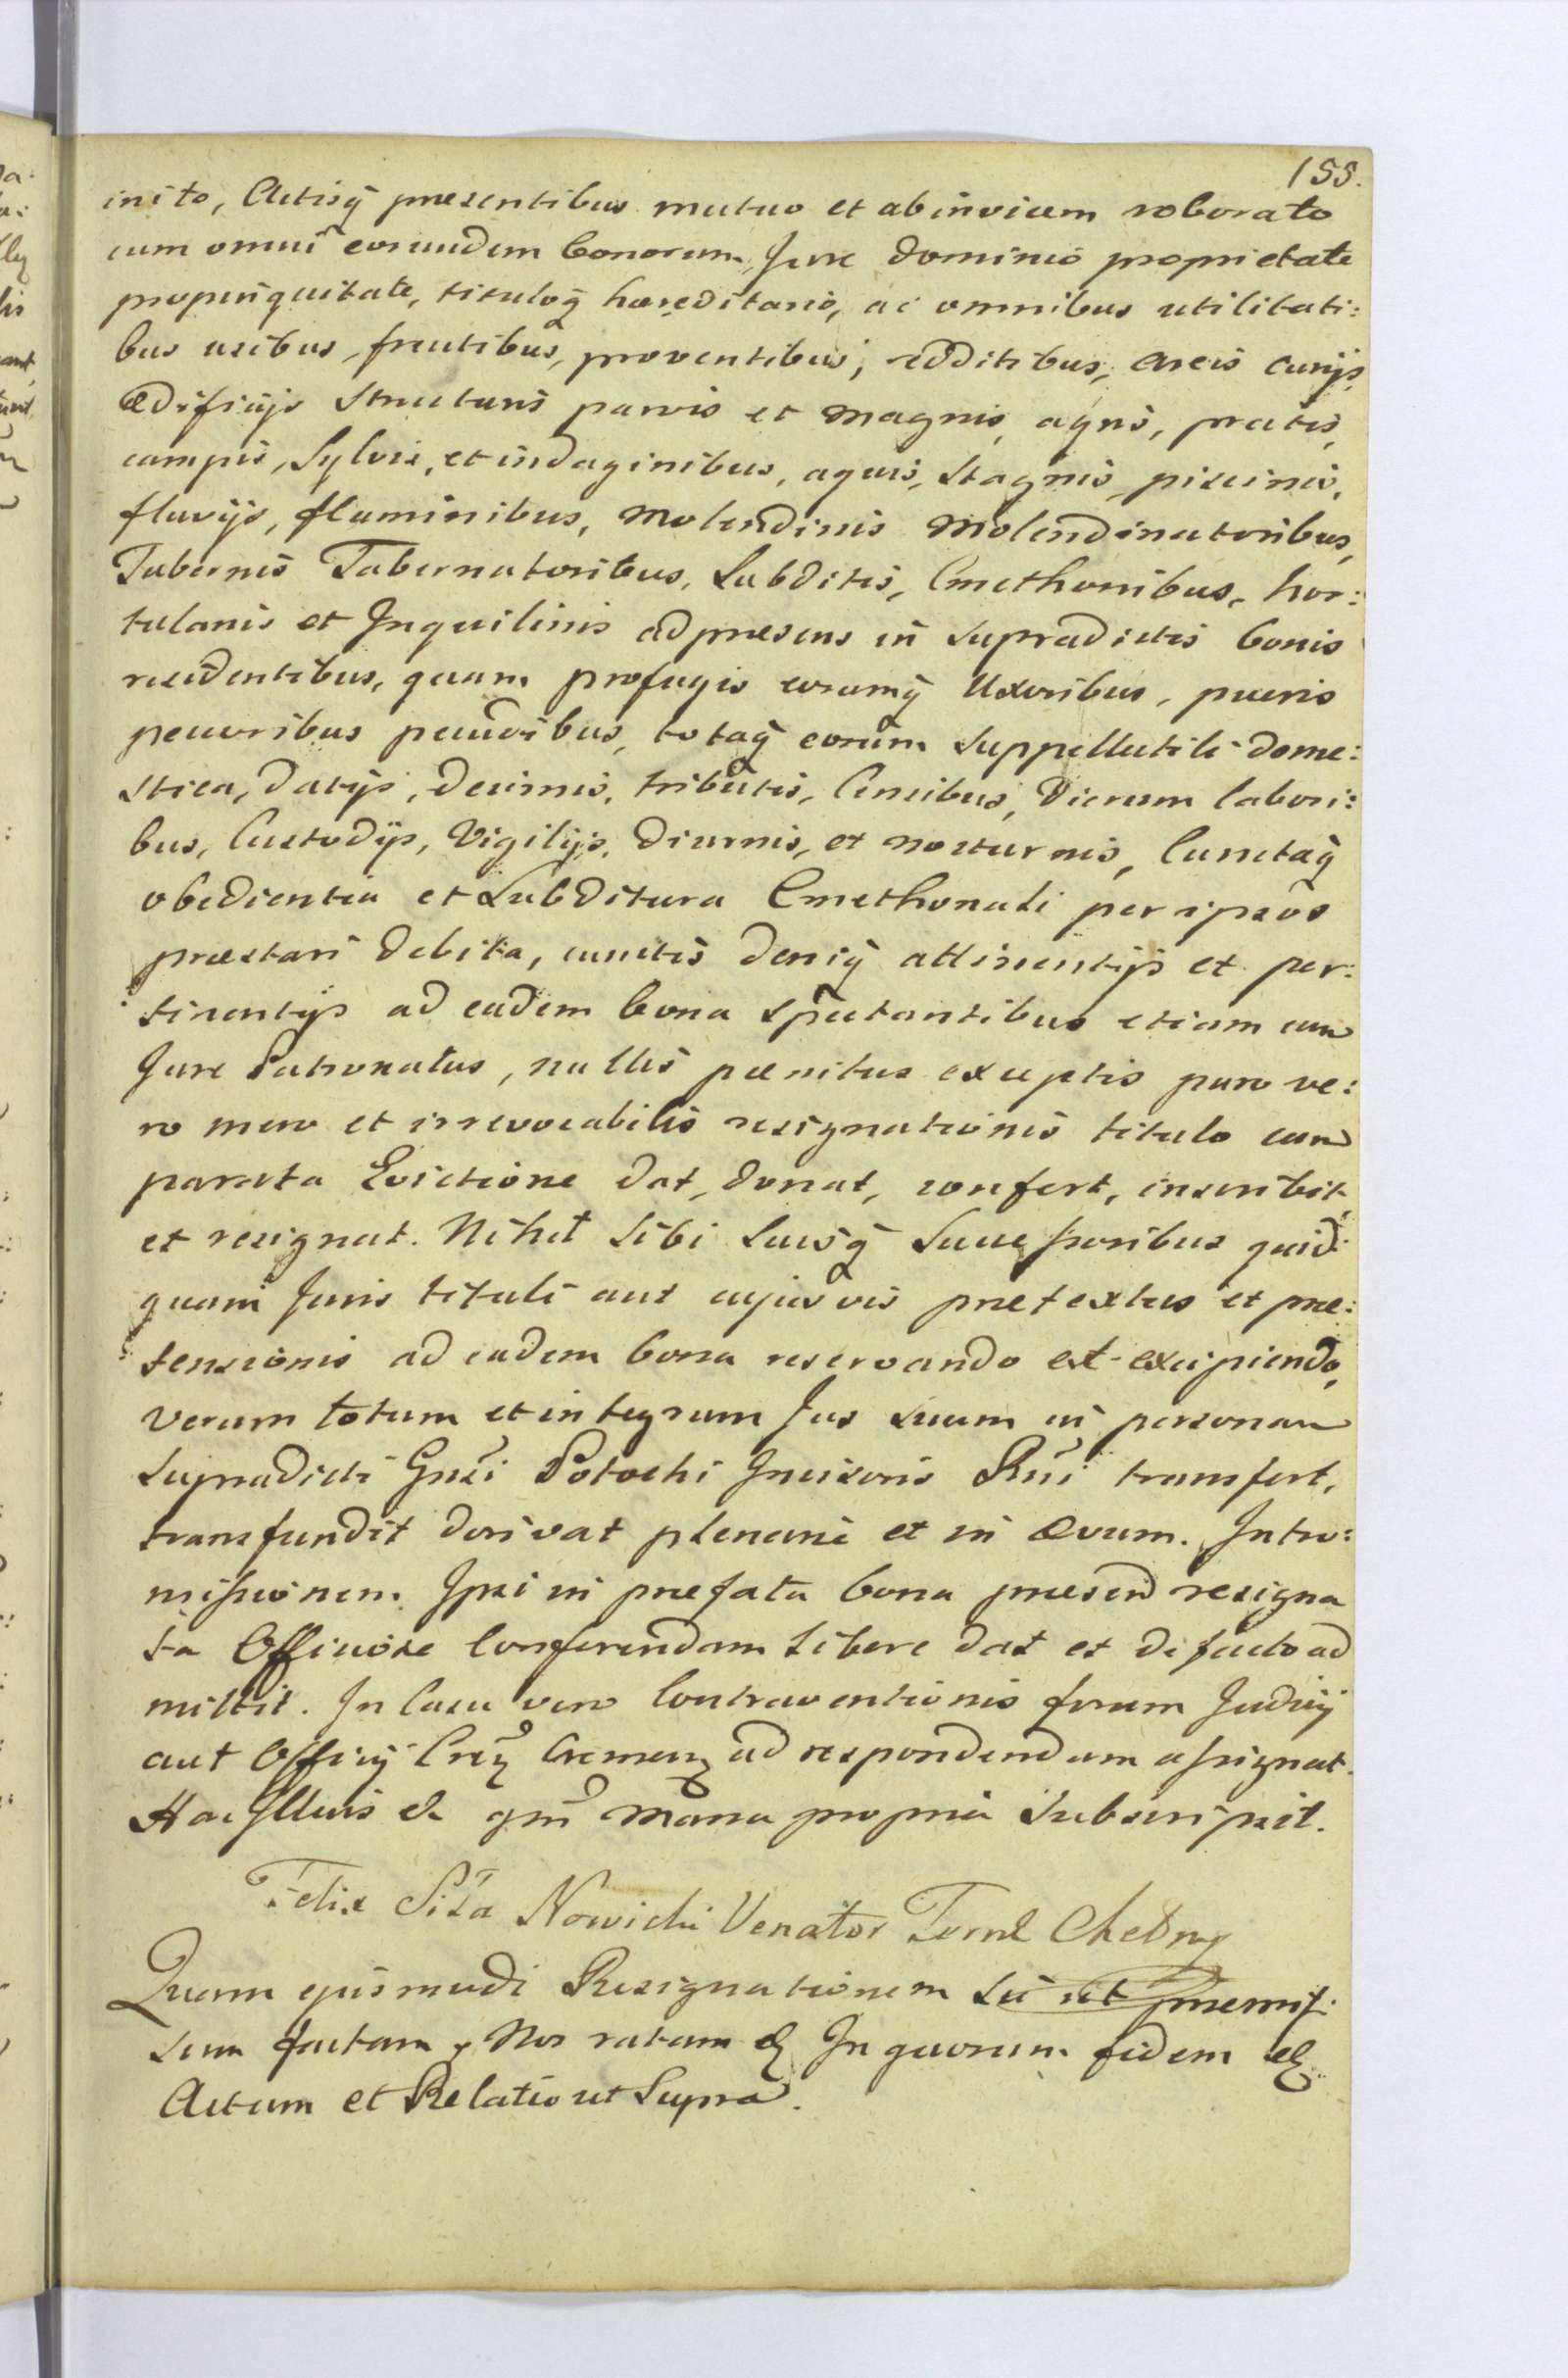 155.
inito, Actisq̃ præsentibus mutuo et abinvicem roborato
cum omni eorundem bonorum, Jure dominio proprietate
propinquitate, tituloq̃ hæreditario, ac omnibus utilitati:
bus usibus, fructibus, proventibus, redditibus, areis curijs,
ædificijs structuris parvis et magnis, agris, pratis,
campis, Sylvis, et indaginibus, aquis, stagnis, piscinis,
fluvijs, fluminibus, molendinis molendinatoribus,
Tabernis Tabernatoribus, Subditis, Cmethonibus, hor:
tulanis et Inquilinis ad præsens in supradictis bonis
residentibus, quam profugis eorumq̃ Uxoribus, pueris
pecoribus pecudibus, totaq̃ eorum suppellectili dome:
stica, datijs, decimis, tributis, Censibus, Dierum labori:
bus, Custodijs, Vigilijs, Diurnis, et nocturnis, Cunctaq̃
obedientia et Subditura Cmethonali per ipsos
præstari debita, cunctis deniq̃ attinentijs et per:
tinentijs ad eadem bona spectantibus etiam cum
Jure Patronatus, nullis pænitus exceptis puro ve:
ro mero et irrevocabilis resignationis titulo cum
parata Evictione dat, donat, confert, inscribit,
et resignat. Nihil sibi suisq̃ Successoribus quid:
quam Juris tituli aut cujusvis prætextus et præ:
tensionis ad eadem bona reservando et excipiendo,
verum totum et integrum Jus suum in personam
supradicti Gnsi Potocki Incisoris Rni transfert,
transfundit derivat plenarie et in ævum. Intro:
missionem Ipsi in præfata bona præsend resigna
ta Officiose Conferendam libere dat et de facto ad
mittit. In Casu vero Contraventionis forum Judicij
aut Officij Creg̃ Cremeng ad respondendum assignat.
Hac Illius & gm̃ manu propria subscripsit.
Felix Siła Nowicki Venator Terræ Chełmg
Quam ejusmodi Resignationem sic ut præmis:
sum factam, Nos ratam & In quorum fidem &
Actum et Relatio ut Supra.